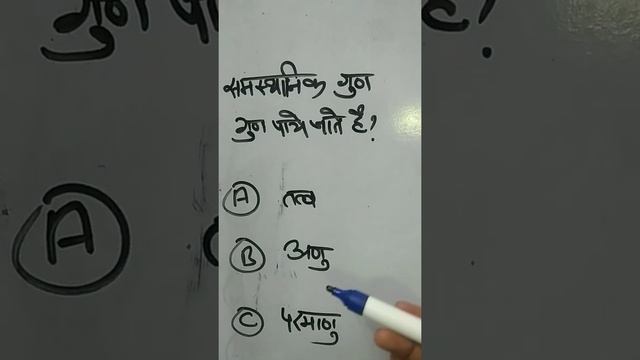 समस्थानिक गुण
गुण पाये जाते है?
(A) तत्व
(B) अणु
(C) परमाणु